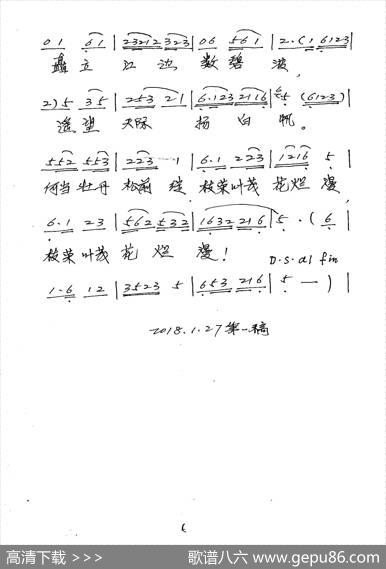 0 1 6 1 | 2 3 2 1 2 3 2 3 | 0 6 5 6 1 | 2 · ( 1 6 1 2 3 |
矗立 江边 数碧波,
2 ) 5 3 5 | 2 5 3 2 1 | 6 · 1 2 3 2 1 1 6 | 5 ( 6 1 2 3 ) |
遥望 天际 扬白帆。
5 5 2 5 5 3 | 2 2 3 · 1 | 6 · 1 2 2 3 | 1 2 1 6 5 |
何当牡丹 松前 枝荣叶茂 花烂漫,
6 · 1 2 3 | 5 6 2 5 3 2 | 1 6 3 2 2 1 6 | 5 · ( 6 |
枝荣叶茂 花 烂 漫!
D.S.al fin
1 · 6 1 2 | 3 5 2 3 5 | 6 5 3 2 1 6 | 5 — ) |
2018.1.27第一稿
6
高清下载 >>>
歌谱八六 www.gepu86.com